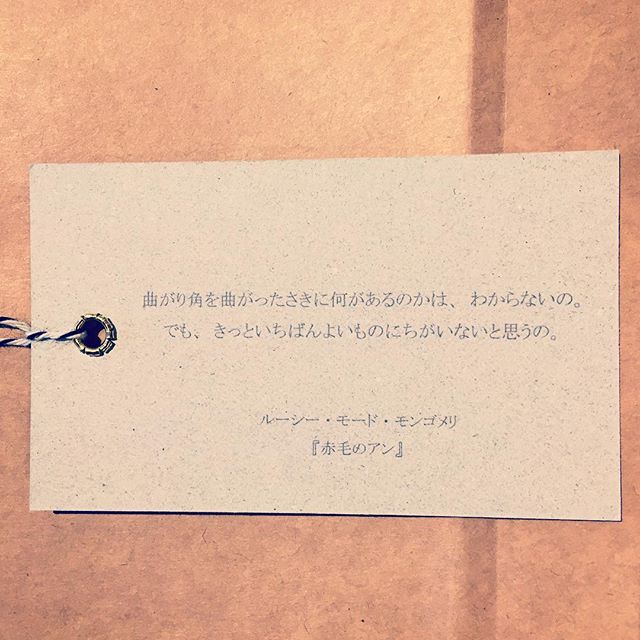 曲がり角を曲がったさきに何があるのかは、わからないの。
でも、きっといちばんよいものにちがいないと思うの。
ルーシー・モード・モンゴメリ
『赤毛のアン』